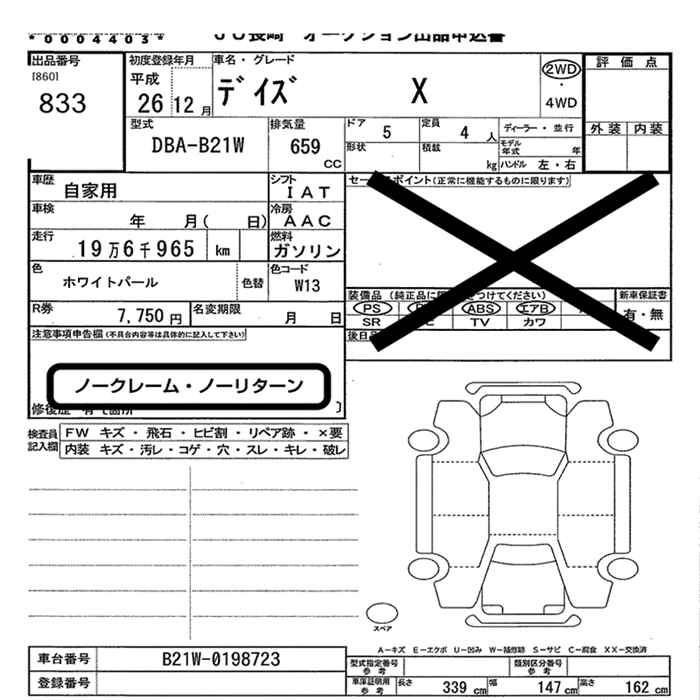 *0004403*
JU長崎 オークション出品申込書
出品番号
[860]
833
初度登録年月
平成
26 12月
車名・グレード
デイズ X
2WD
・
4WD
評価点
外装 内装
型式
DBA-B21W
排気量
659
CC
ドア 5
定員 4 人
ディーラー・並行
形状
積載 kg
モデル年式 年
ハンドル 左・右
車歴 自家用
シフト IAT
車検 年 月( 日)
冷房 AAC
走行 19万6千965 km
燃料 ガソリン
色 ホワイトパール
色替
色コード W13
R券 7,750円
名変期限 月 日
ポイント(正常に機能するものに限ります)
装備品 (純正品に つけてください)
PS ABS エアB
SR TV カワ
新車保証書
有・無
後日
注意事項申告欄(不具合内容等は具体的に記入して下さい)
ノークレーム・ノーリターン
修復歴
検査員記入欄
FW キズ・飛石・ヒビ割・リペア跡・×要
内装 キズ・汚レ・コゲ・穴・スレ・キレ・破レ
スペア
A-キズ E-エクボ U-凹み W-補修跡 S-サビ C-腐食 XX-交換済
車台番号 B21W-0198723
登録番号
型式指定番号 参考
類別区分番号 参考
車庫証明用 参考
長さ 339 cm 幅 147 cm 高さ 162 cm